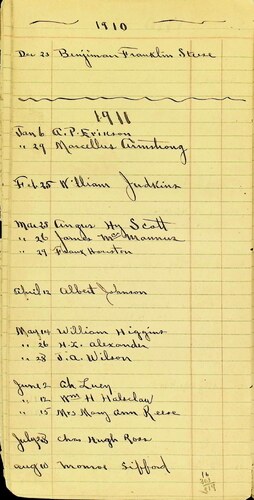 1910
Dec 23 Benjiman Franklin Stese
1911
Jan 6 A. P. Erikson
" 29 Marcellus Armstrong
Feb 25 William Judkins
Mar 25 Angus Hy Scott
" 26 James McManus
" 29 Frank Houston
April 12 Albert Johnson
May 14 William Higgins
" 26 H. L. Alexander
" 28 J. A. Wilson
June 2 Ah Lucy
" 12 Wm H Halsclaw
" 15 Mrs Mary Ann Reese
July 28 Chas Hugh Rose
Aug 10 Monroe Sifford
16